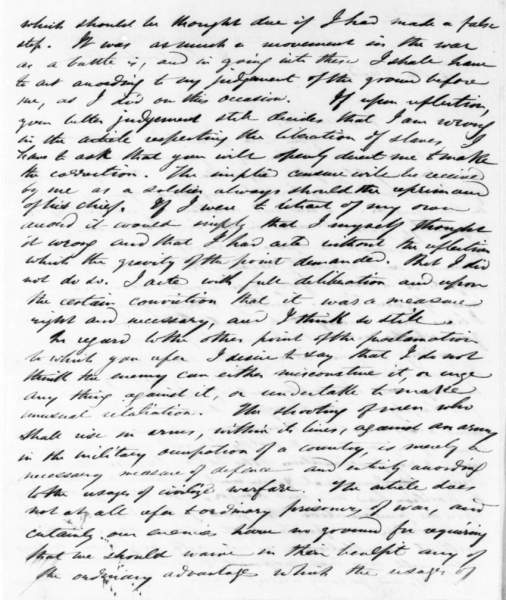 which should be thought due if I had made a false
step. It was as much a movement in the war
as a battle is, and in going into these I shall have
to act according to my judgement of the ground before
me, as I did on this occasion. If upon reflection,
your better judgement still decides that I am wrong
in the article respecting the liberation of slaves, I
have to ask that you will openly direct me to make
the correction. The implied censure will be received
by me as a soldier always should the reprimand
of his chief. If I were to retract of my own
accord it would imply that I myself thought
it wrong and that I had acted without the reflection
which the gravity of the point demanded. But I did
not do so. I acted with full deliberation and upon
the certain conviction that it was a measure
right and necessary, and I think so still.
In regard to the other point of the proclamation
to which you refer I desire to say that I do not
think the enemy can either misconstrue it, or urge
any thing against it, or undertake to make
unusual retaliation. The shooting of men who
shall rise in arms, within its lines, against an army
in the military occupation of a country, is merely a
necessary measure of defence and entirely according
to the usages of civilized warfare. The article does
not at all refer to ordinary prisoners of war, and
certainly our enemies have no ground for requiring
that we should waive in their benefit any of
the ordinary advantages which the usages of